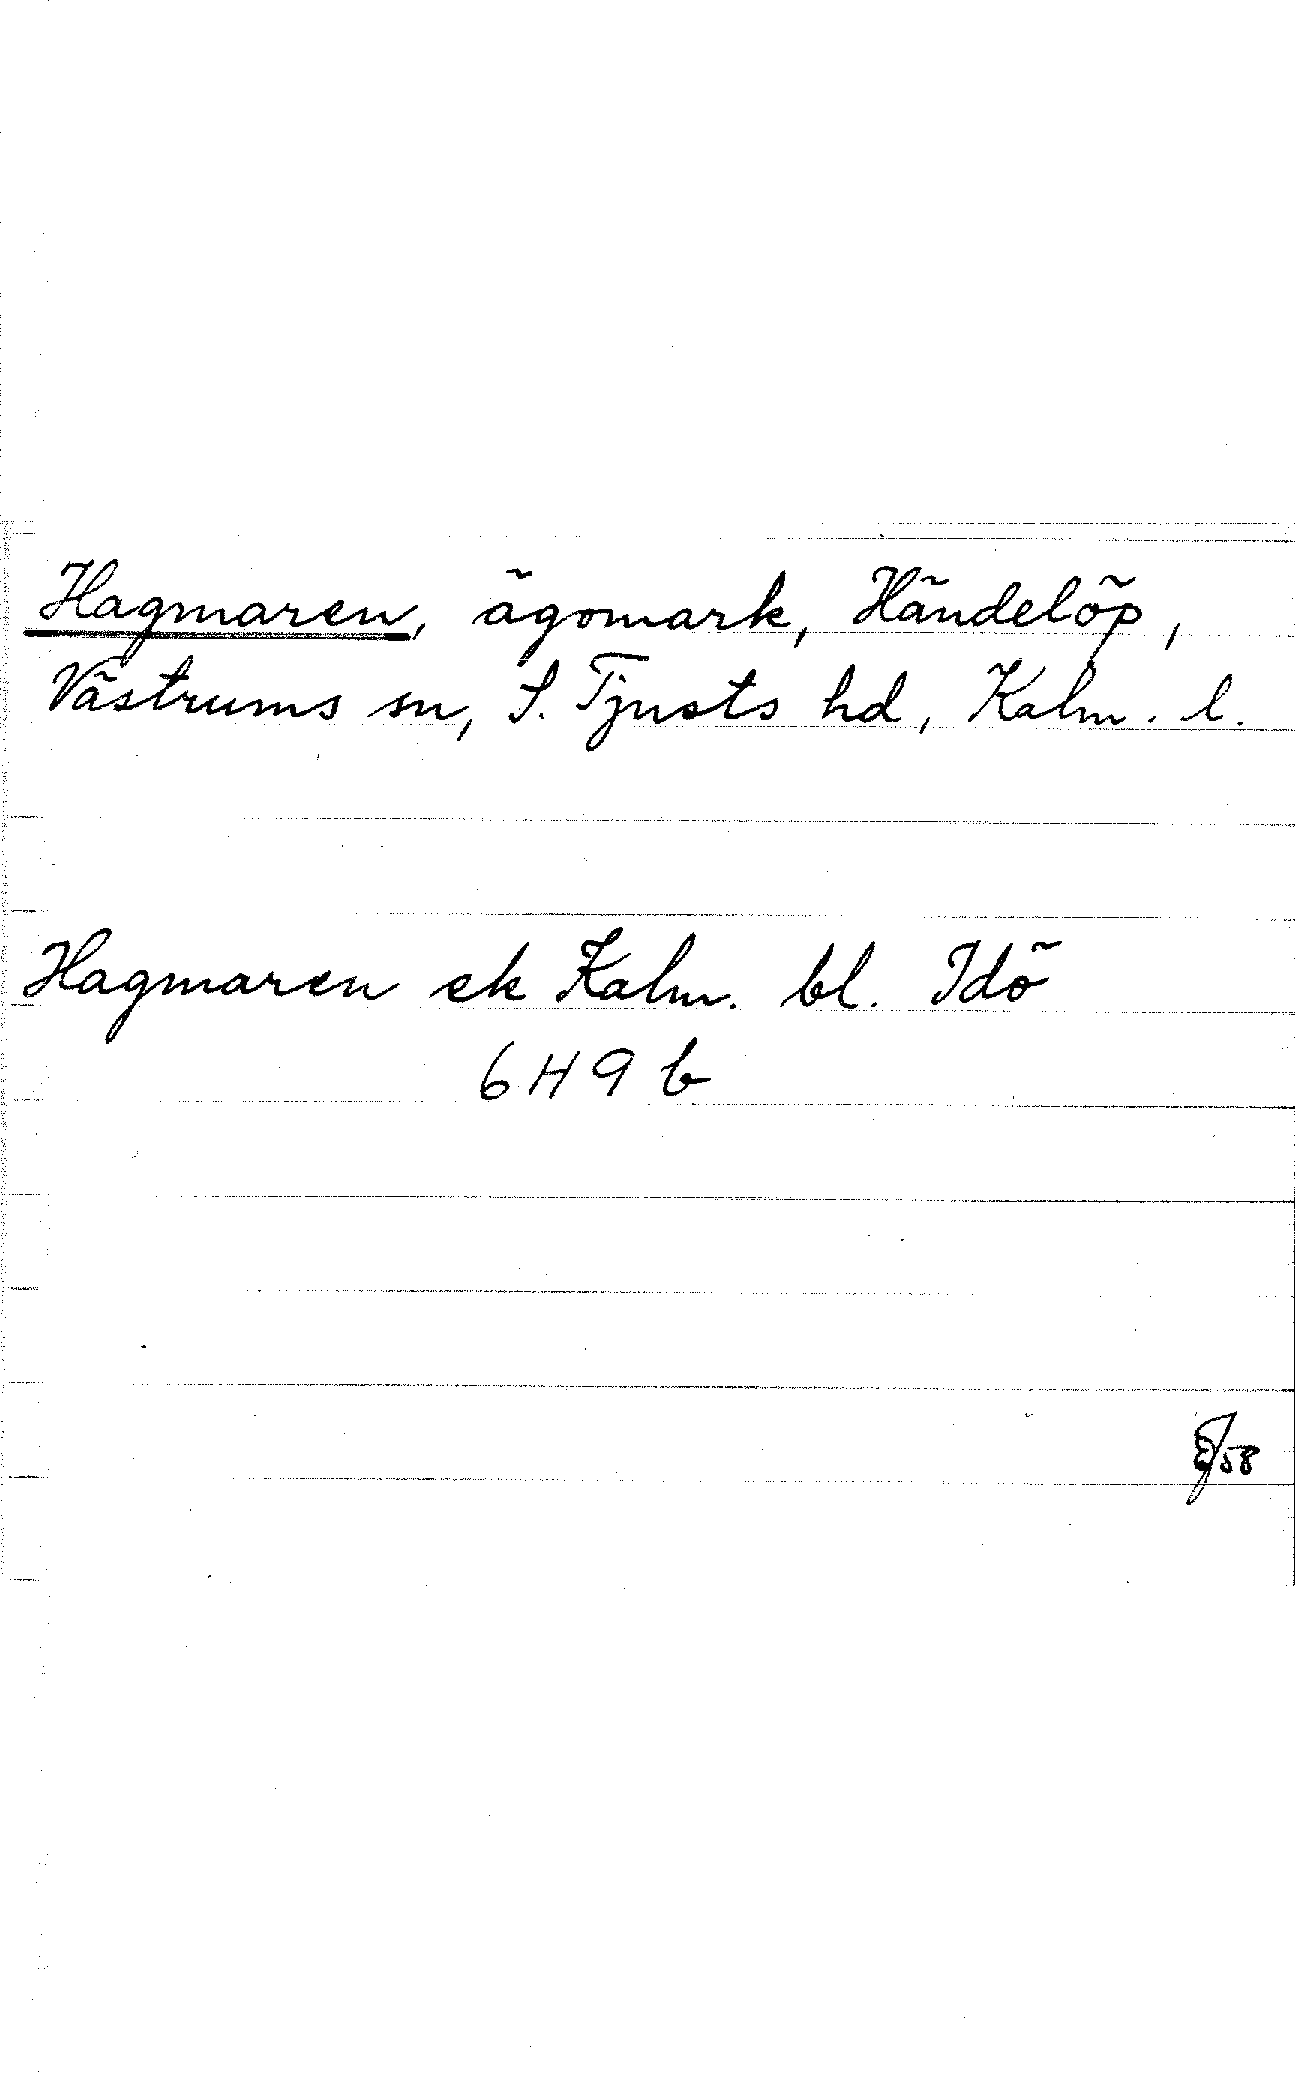 Hagmaren, ägomark, Händelöp,
Västrums sn, S. Tjusts hd, Kalm. l.
Hagmaren ek Kalm. bl. Idö
6 H 9 b
58